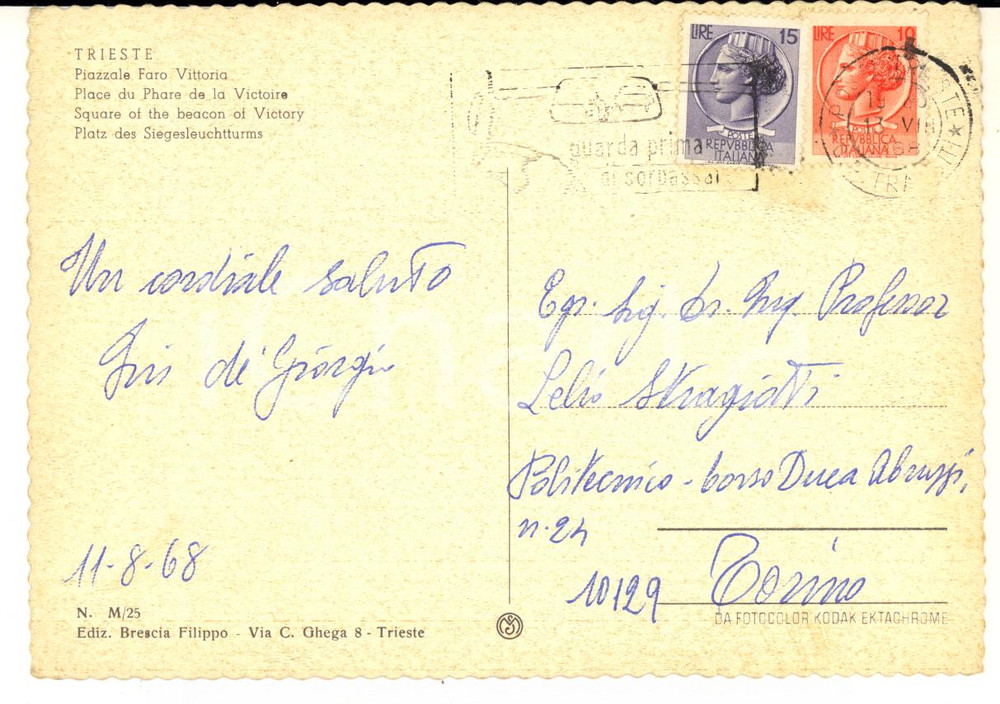 TRIESTE
Piazzale Faro Vittoria
Place du Phare de la Victoire
Square of the beacon of Victory
Platz des Siegesleuchtturms
LIRE 15
POSTE
REPVBBLICA
ITALIANA
LIRE 10
REPVBBLICA
ITALIANA
guarda prima
di sorpassar
Un cordiale saluto
de Giorgi
11-8-68
Egr. Sig. Dr. Ing. Professor
Lelio Stragiotti
Politecnico - Corso Duca Abruzzi,
n. 24
10129 Torino
N. M/25
Ediz. Brescia Filippo - Via C. Ghega 8 - Trieste
DA FOTOCOLOR KODAK EKTACHROME